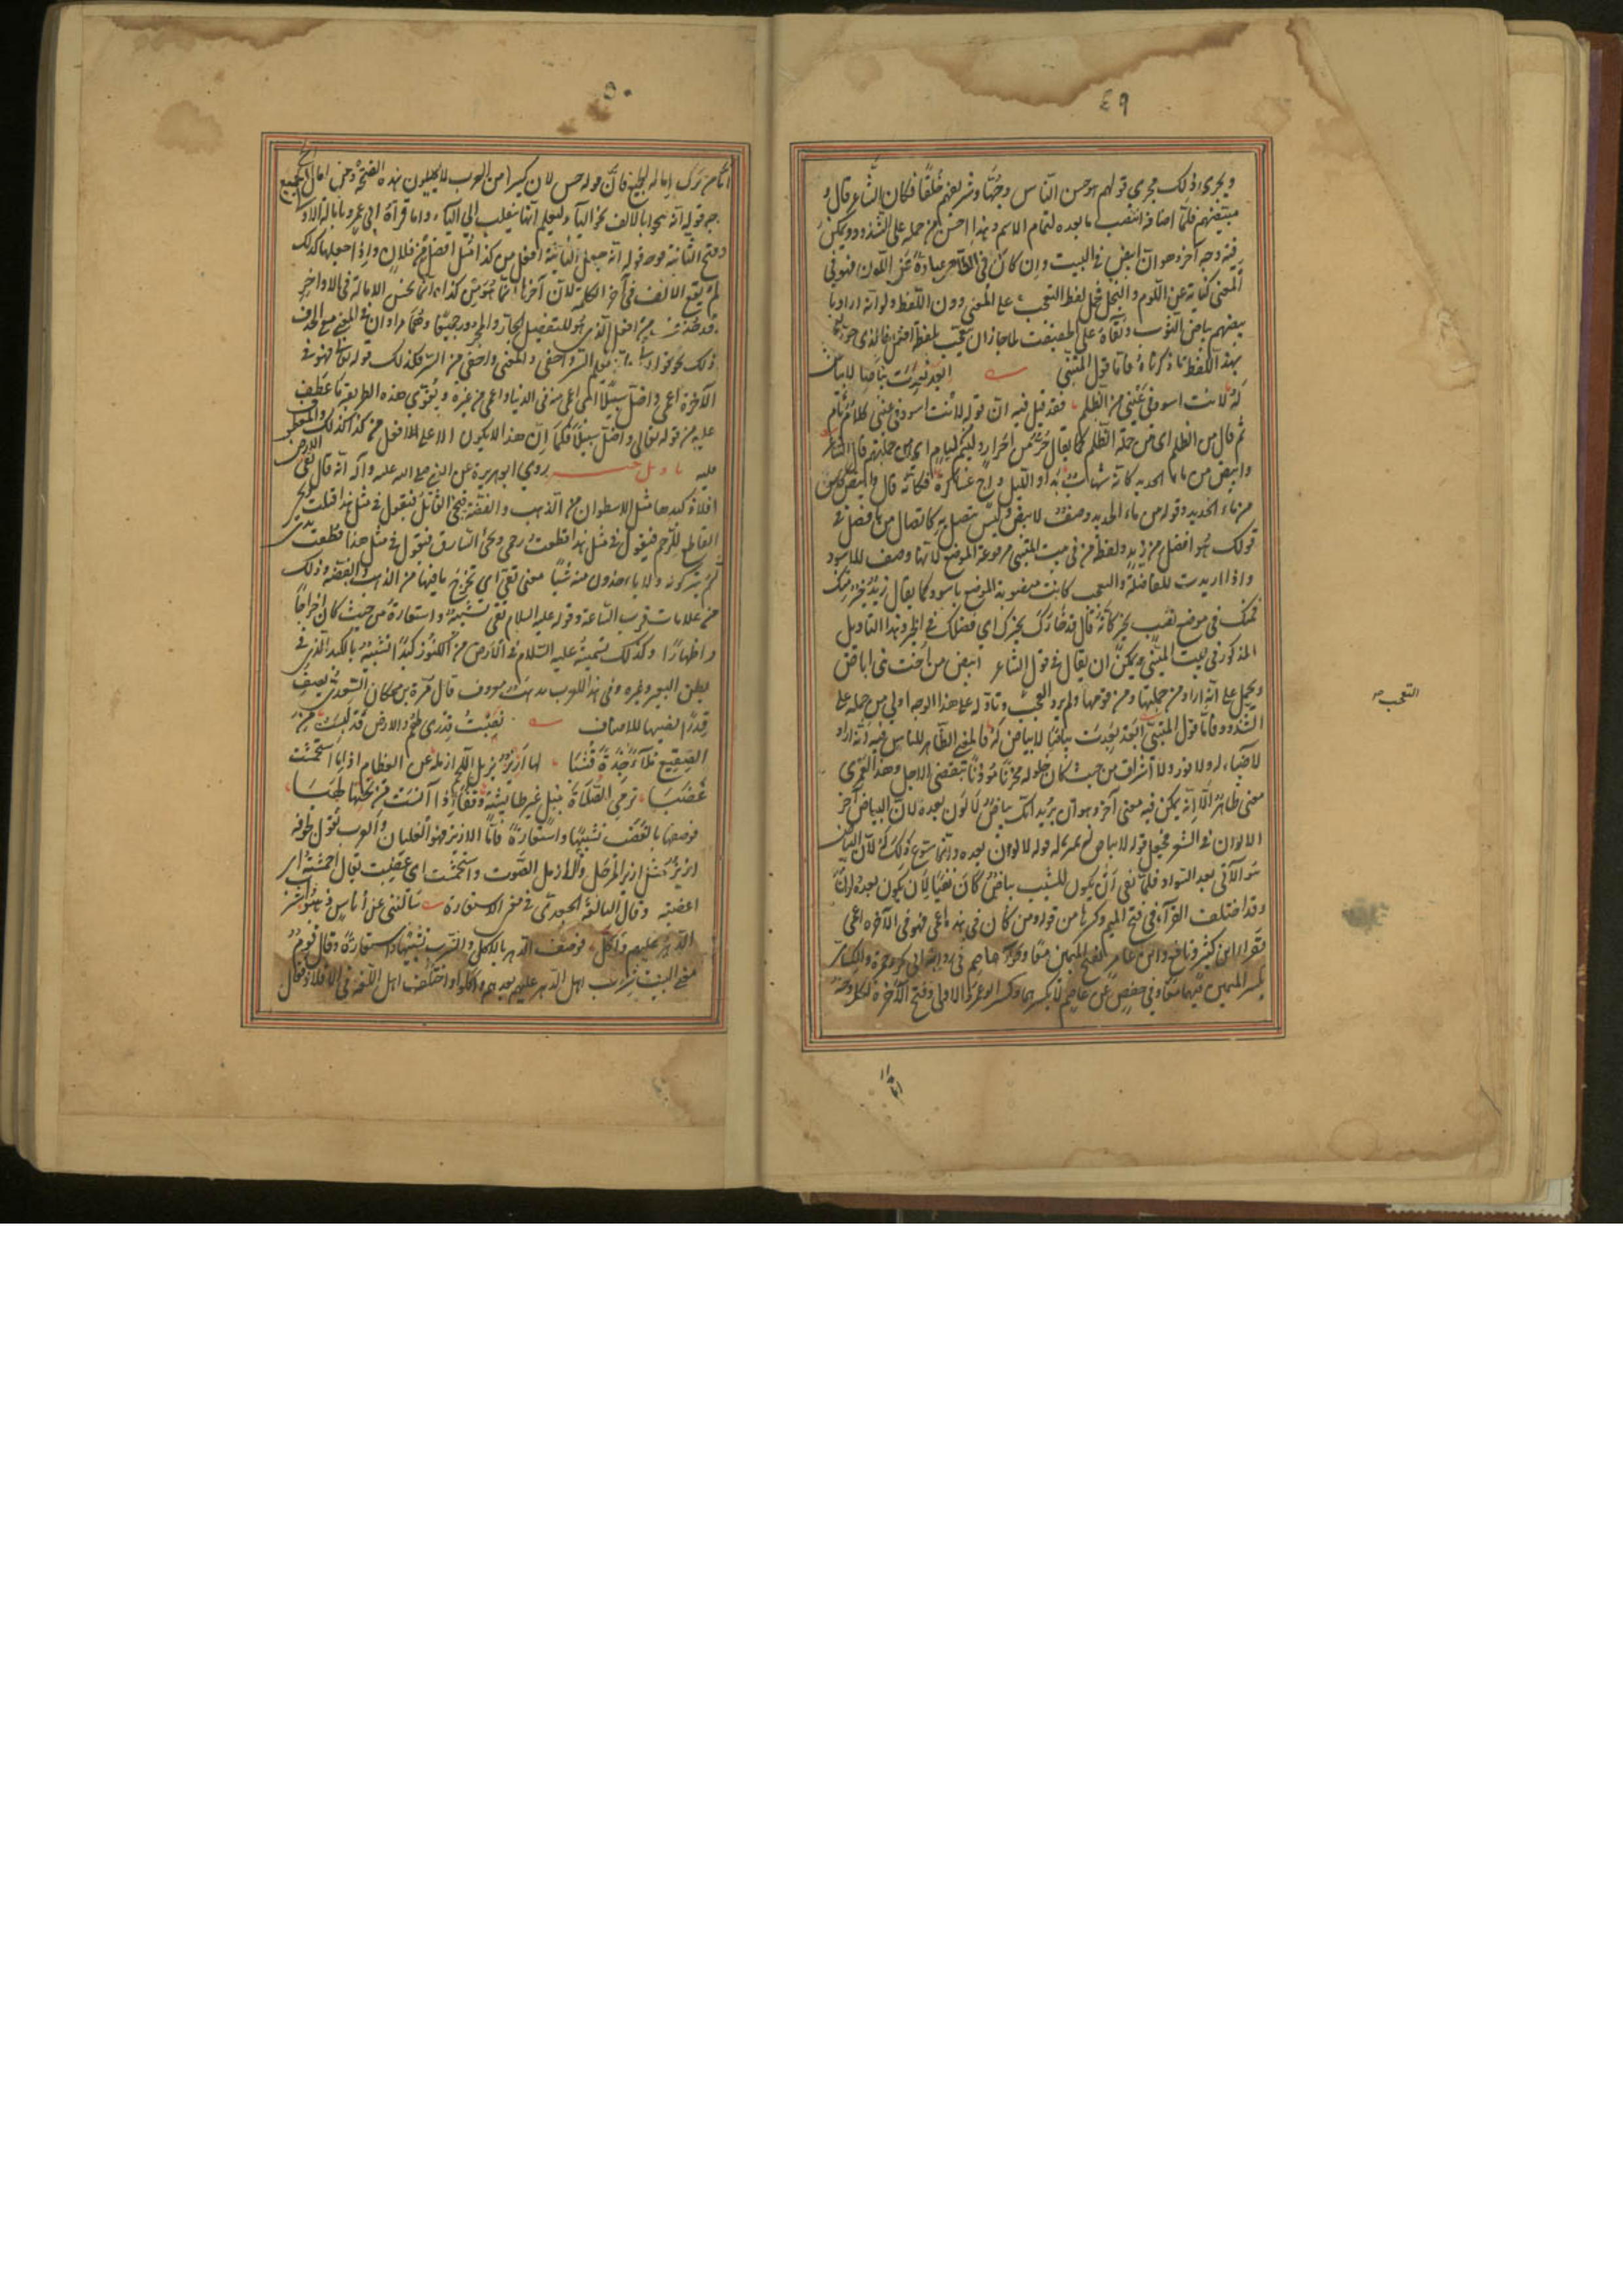 ٤٩
ويجرى ذلك مجرى قولهم هو حسن الناس وجهًا وشريفهم خلقًا فكان الشاعر قال و
مبيضهم فلمّا اضافه انتصب ما بعده لتمام الاسم وهذا احسن من حمله على الشذوذ ويمكن
فيه وجه آخر وهو انّ ابيض في البيت وان كان في الظاهر عبارةً عن اللون فهو في
المعنى كناية عن اللوم والبخل فحمل لفظ التعجب على المعنى دون اللفظ ولو انّه اراد با
بيضهم بياض الثوب ونقاءه على الحقيقة لما جاز ان يتعجب بلفظ افعل فالذي جوز
بهذا اللفظ ما ذكرناه فامّا قول المتنبّي ابعد بعدت بياضا لا بياض
له لانت اسود في عيني من الظلم فقد قيل فيه انّ قوله لانت اسود في عيني كلام تام
ثم قال من الظلم اي من جملة الظلم كما يقال حرّ من احرار ولئيم من لئام اي من جملتهم قال الشاعر
وابيض من ماء الحديد كانه شهاب بدا والليل داج عساكره فكانه قال وابيض كائن
من ماء الحديد وقوله من ماء الحديد وصف لابيض وليس يتصل به كاتصال من بافضل في
قولك هو افضل من زيد ولفظة من في بيت المتنبي مرفوعة الموضع لانها وصف لاسود
واذا اريدت للمفاضلة والتعجب كانت منصوبة الموضع باسود كما يقال زيد خير منك
فمنك في موضع نصب بخير كانه قال قد خارك يخيرك اي فضلك في الخير وهذا التاويل
المذكور في بيت المتنبّي يمكن ان يقال في قول الشاعر ابيض من اخت بني اباض
ويحمل على انه اراد من جملتها ومن قومها ولم يرد التعجب وتاوله على هذا الوجه اولى من حمله على
الشذوذ فامّا قول المتنبي ابعد بعدت بياضًا لا بياض له فالمعنى الظاهر للناس فيه انّه اراد
لا ضياء له ولا نور ولا اشراق من حيث كان حلوله محزنًا مؤذنًا بتقضّي الاجل وهذا لعمري
معنى ظاهر الّا انّه يمكن فيه معنى آخر وهو ان يريد انك بياض لا لون بعده لان البياض آخر
الالوان في الشعر فجعل قوله لا بياض له بمنزلة قوله لا لون بعده وانما سوغ ذلك له لانّ البياض
هو الآتي بعد السواد فلمّا نفى ان يكون للشيب بياض كان نفيًا لان يكون بعده لون
وقد اختلف القرآء في فتح الميم وكسرها من قوله ومن كان في هذه اعمى فهو في الآخرة اعمى
فقرا ابن كثير ونافع وابن عامر بفتح الميمين معًا وقرا عاصم في رواية ابي بكر وحمزة والكسائي
بكسر الميمين فيهما معًا وفي حفص عن عاصم لا يكسرهما وكسر ابو عمرو الاولى وفتح الآخرة لكلّ وجه
التعجب صح
امّا
٥٠
امّا من ترك امالة الجميع فانّ قوله حسن لان كثيرا من العرب لا يميلون هذه الفتحة وامّا من امال الجميع
فوجه قوله انّه ينحو بالالف نحو الياء ليعلم انها ينقلب الى الياء واما قراة ابي عمرو بامالة الاولى
وفتح الثانية فوجه قوله انّه جعل الثانية افعل من كذا مثل افضل من فلان واذا جعلها كذلك
لم يقع الالف في آخر الكلمة لان آخرها انما هو من كذا وانّما تحسن الامالة في الاواخر
وقد حذف من افعل الذي هو للتفضيل الجار والمجرور جميعًا وهما مرادان في المعنى مع الحذف
ذلك نحو قوله تعالى يعلم السر واخفى والمعنى واخفى من السر فكذلك قوله تعالى فهو في
الآخرة اعمى واضل سبيلًا اي اعمى منه في الدنيا واعمى من غيره ويقوى هذه الطريقة ما عطف
عليه من قوله تعالى واضل سبيلا فكما انّ هذا لا يكون الا على افعل من كذا كذلك المعطوف
عليه تاويل خبر روى ابو هريره عن النبي صلى الله عليه وآله انّه قال تقى الارض
افلاذ كبدها مثل الاسطوان من الذهب والفضة فيجئ القاتل فيقول في مثل هذا قتلت ويجئ
القاطع للرحم فيقول في مثل هذا قطعت رحمي ويجئ السارق فيقول في مثل هذا قطعت يدي
ثم يتركونه ولا ياخذون منه شيئًا معنى تقى اي تخرج ما فيها من الذهب والفضة وذلك
من علامات قرب الساعة وقوله عليه السلام تقى تشبيه واستعارة من حيث كان اخراجًا
واظهارًا وكذلك تسمية عليه السّلام في الارض من الكنوز كبدًا تشبيه بالكبد الّذي في
بطن البعير وغيره وفي هذا للعرب مذهب معروف قال مرّة بن محكان السّعدي يصف
قدرًا نصبها للاضياف نصبت قدري لهم والارض قد لبست من
الصقيع ملاء جدة قشبا لها ازيز يزيل اللحم ازمله عن العظام اذا ما استحمشت
غضبا ترمي الصلاة بنبل غير طائشة وفقًا اذا آنست من تحتها لهبا
فوصفها بالغضب تشبيهًا واستعارة فامّا الازيز فهو الغليان والعرب تقول لجوفه
ازيز مثل ازيز المرجل والازمل الصّوت واستحمشت اي غضبت يقال احمشته اي
اغضبته وقال النابغة الجعدي في معنى الاستعارة سالتني عن اناس هلكوا شرب
الدّهر عليهم واكل فوصف الدهر بالاكل والشرب تشبيهًا واستعارةً وقال قوم
معنى البيت شرب اهل الدّهر عليهم بعدهم واكلوا واختلف اهل اللغه في الافلاذ فقال